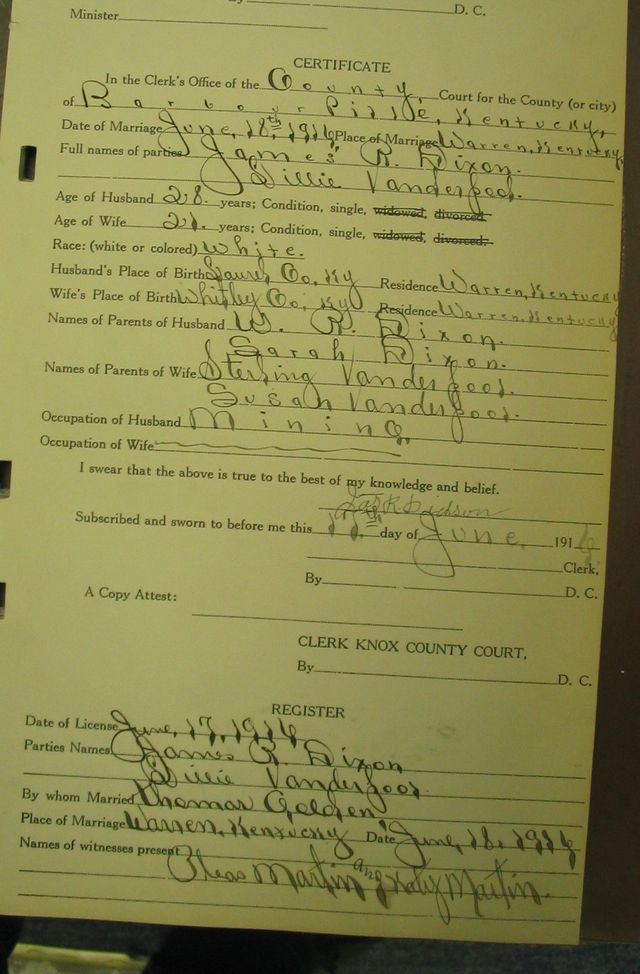 By D. C.
Minister
CERTIFICATE
In the Clerk's Office of the County, Court for the County (or city)
of Barbourville, Kentucky,
Date of Marriage June, 18th, 1916 Place of Marriage Warren, Kentucky
Full names of parties James R. Dixon.
Lillie Vanderpool.
Age of Husband 28. years; Condition, single, widowed, divorced.
Age of Wife 21. years; Condition, single, widowed, divorced.
Race: (white or colored) White.
Husband's Place of Birth Laurel Co, Ky Residence Warren, Kentucky
Wife's Place of Birth Whitley Co, Ky Residence Warren, Kentucky
Names of Parents of Husband W. R. Dixon.
Sarah Dixon.
Names of Parents of Wife Sterling Vanderpool.
Susan Vanderpool.
Occupation of Husband Mining.
Occupation of Wife
I swear that the above is true to the best of my knowledge and belief.
Subscribed and sworn to before me this 17th day of June, 1916
Clerk,
By D. C.
A Copy Attest:
CLERK KNOX COUNTY COURT,
By D. C.
REGISTER
Date of License June, 17, 1916
Parties Names James R. Dixon
Lillie Vanderpool
By whom Married Thomas Golden
Place of Marriage Warren, Kentucky Date June, 18, 1916
Names of witnesses present Pleas Martin and Katy Martin.